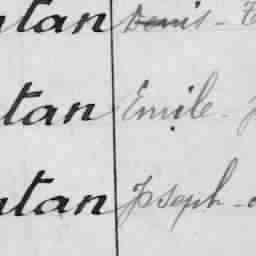 tan Denis -
tan Emile -
tan Joseph -